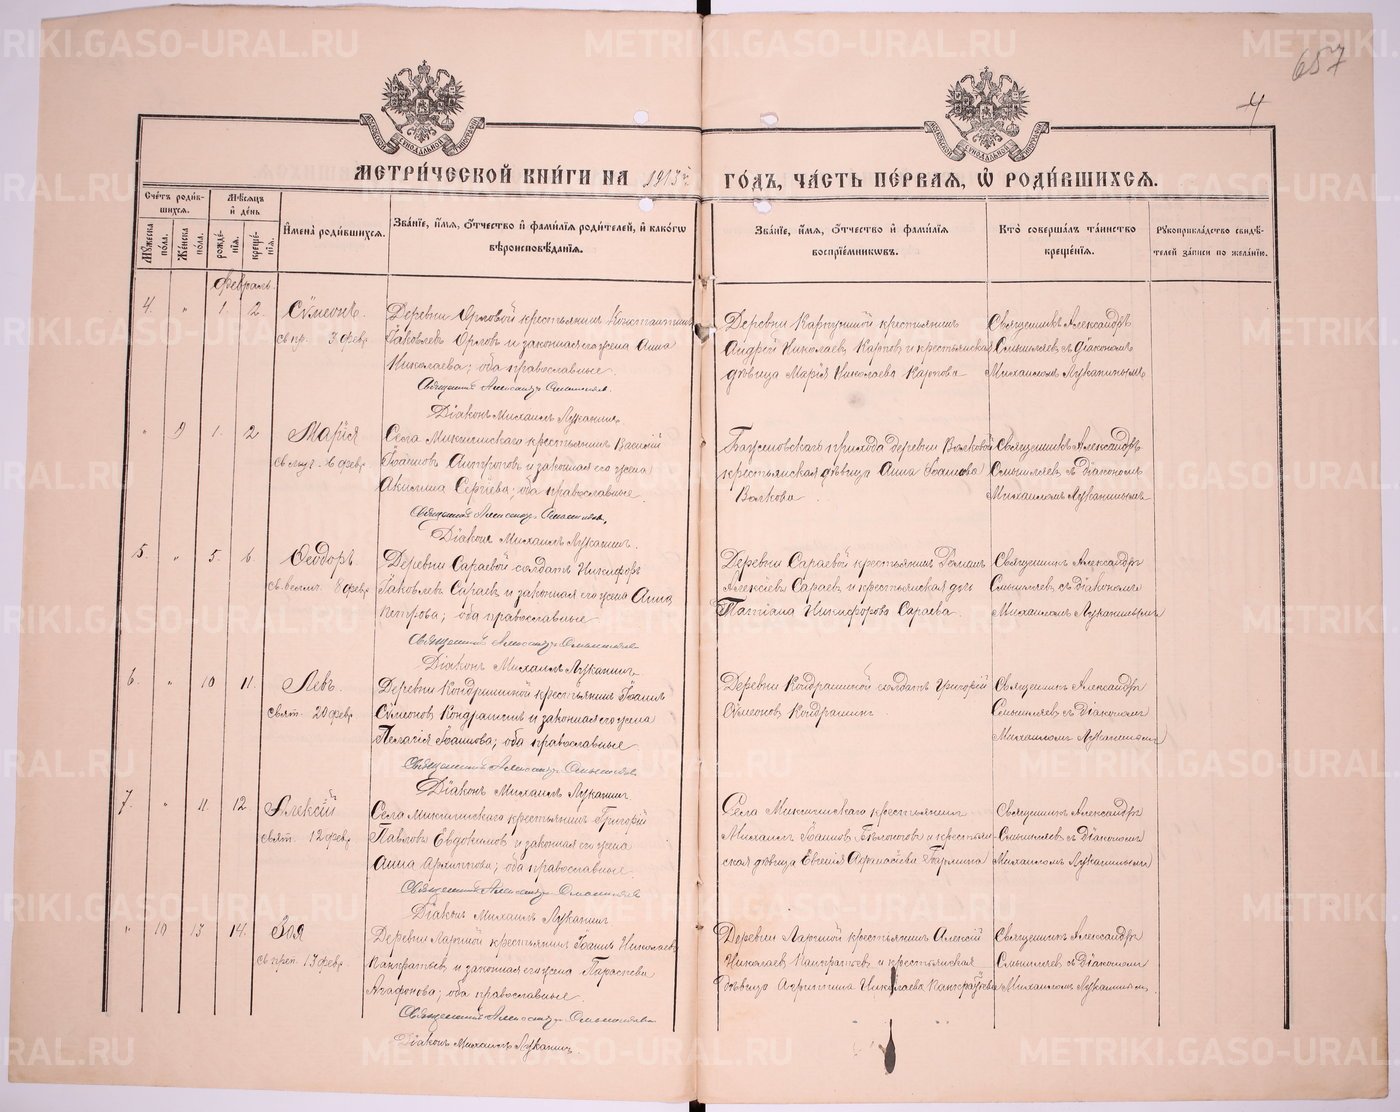 657
4
МЕТРИ́ЧЕСКОЙ КНИ́ГИ НА 1913 й
ГО́ДЪ, ЧА́СТЬ ПЕ́РВАЯ, Ѡ҆ РОДИ́ВШИХСЯ.
Сче́тъ роди́вшихся.
Мꙋжеска пола.
Же́нска пола.
Мѣ́сяцъ и҆ де́нь
рожде́нїя.
креще́нїя.
И҆мена̀ роди́вшихся.
Зва́нїе, и҆́мя, ѻ҆́тчество и҆ фами́лїя роди́телей, и҆ како́гѡ вѣроисповѣ́данїя.
Зва́нїе, и҆́мя, ѻ҆́тчество и҆ фами́лїя воспрїе́мниковъ.
Кто̀ соверша́лъ та́инство креще́нїя.
Рꙋкоприкла́дство свидѣ́телей за́писи по жела́нїю.
Февраль.
4. " 1. 2. Сѵмеонъ.
св. пр. 3 февр.
Деревни Орловой крестьянинъ Константинъ
Іаковлевъ Орловъ и законная его жена Анна
Николаева; оба православные.
Священникъ Александръ Смышляевъ
Діаконъ Михаилъ Лукинын
Деревни Карпушиной крестьянинъ
Андрей Николаевъ Карповъ и крестьянская
дѣвица Марія Николаева Карпова
Священникъ Александръ
Смышляевъ съ діакономъ
Михаиломъ Лукинынымъ
" 9 1. 2 Марія
6 февр.
Села Микшинскаго крестьянинъ Василій
Іоанновъ Антроповъ и законная его жена
Акилина Сергіева; оба православные.
Священникъ Александръ Смышляевъ
Діаконъ Михаилъ
прихода деревни Волковой
крестьянская дѣвица Анна Іоаннова
Волкова.
Священникъ Александръ
Смышляевъ съ діакономъ
Михаиломъ
5. " 5. 6 Ѳеодоръ
св. велич. 8 февр.
Деревни Сараевой солдатъ Никифоръ
Іаковлевъ Сараевъ и законная его жена Анна
Петрова; оба православные
Священникъ Александръ Смышляевъ
Діаконъ Михаилъ
Деревни Сараевой крестьянинъ Романъ
Алексіевъ Сараевъ и крестьянская дочь
Татіана Никифорова Сараева.
Священникъ Александръ
Смышляевъ съ діакономъ
Михаиломъ
6. " 10 11. Левъ.
свят. 20 февр.
Деревни Кондрашиной крестьянинъ Іоаннъ
Сѵмеоновъ Кондрашинъ и законная его жена
Пелагія Іоаннова; оба православные
Священникъ Александръ Смышляевъ
Діаконъ Михаилъ
Деревни Кондрашиной солдатъ Григорій
Сѵмеоновъ Кондрашинъ
Священникъ Александръ
Смышляевъ съ діакономъ
Михаиломъ
7. " 11 12 Алексій
свят. 12 февр.
Села Микшинскаго крестьянинъ Григорій
Павловъ Евдокимовъ и законная его жена
Анна Архиппова; оба православные.
Священникъ Александръ Смышляевъ
Діаконъ Михаилъ
Села Микшинскаго крестьянинъ
Михаилъ Іоанновъ Бѣлоноговъ и крестьян
ская дѣвица Евгенія Афанасіева
Священникъ Александръ
Смышляевъ съ діакономъ
Михаиломъ
" 10 13 14. Зоя
св. преп. 13 февр.
Деревни Лаптиной крестьянинъ Іоаннъ Николаевъ
Панкратьевъ и законная его жена Параскева
Агафонова; оба православные.
Священникъ Александръ Смышляевъ
Діаконъ Михаилъ
Деревни Лаптиной крестьянинъ Алексій
Николаевъ Панкратьевъ и крестьянская
дѣвица Агриппина Николаева Панкратьева
Священникъ Александръ
Смышляевъ съ діакономъ
Михаиломъ
METRIKI.GASO-URAL.RU